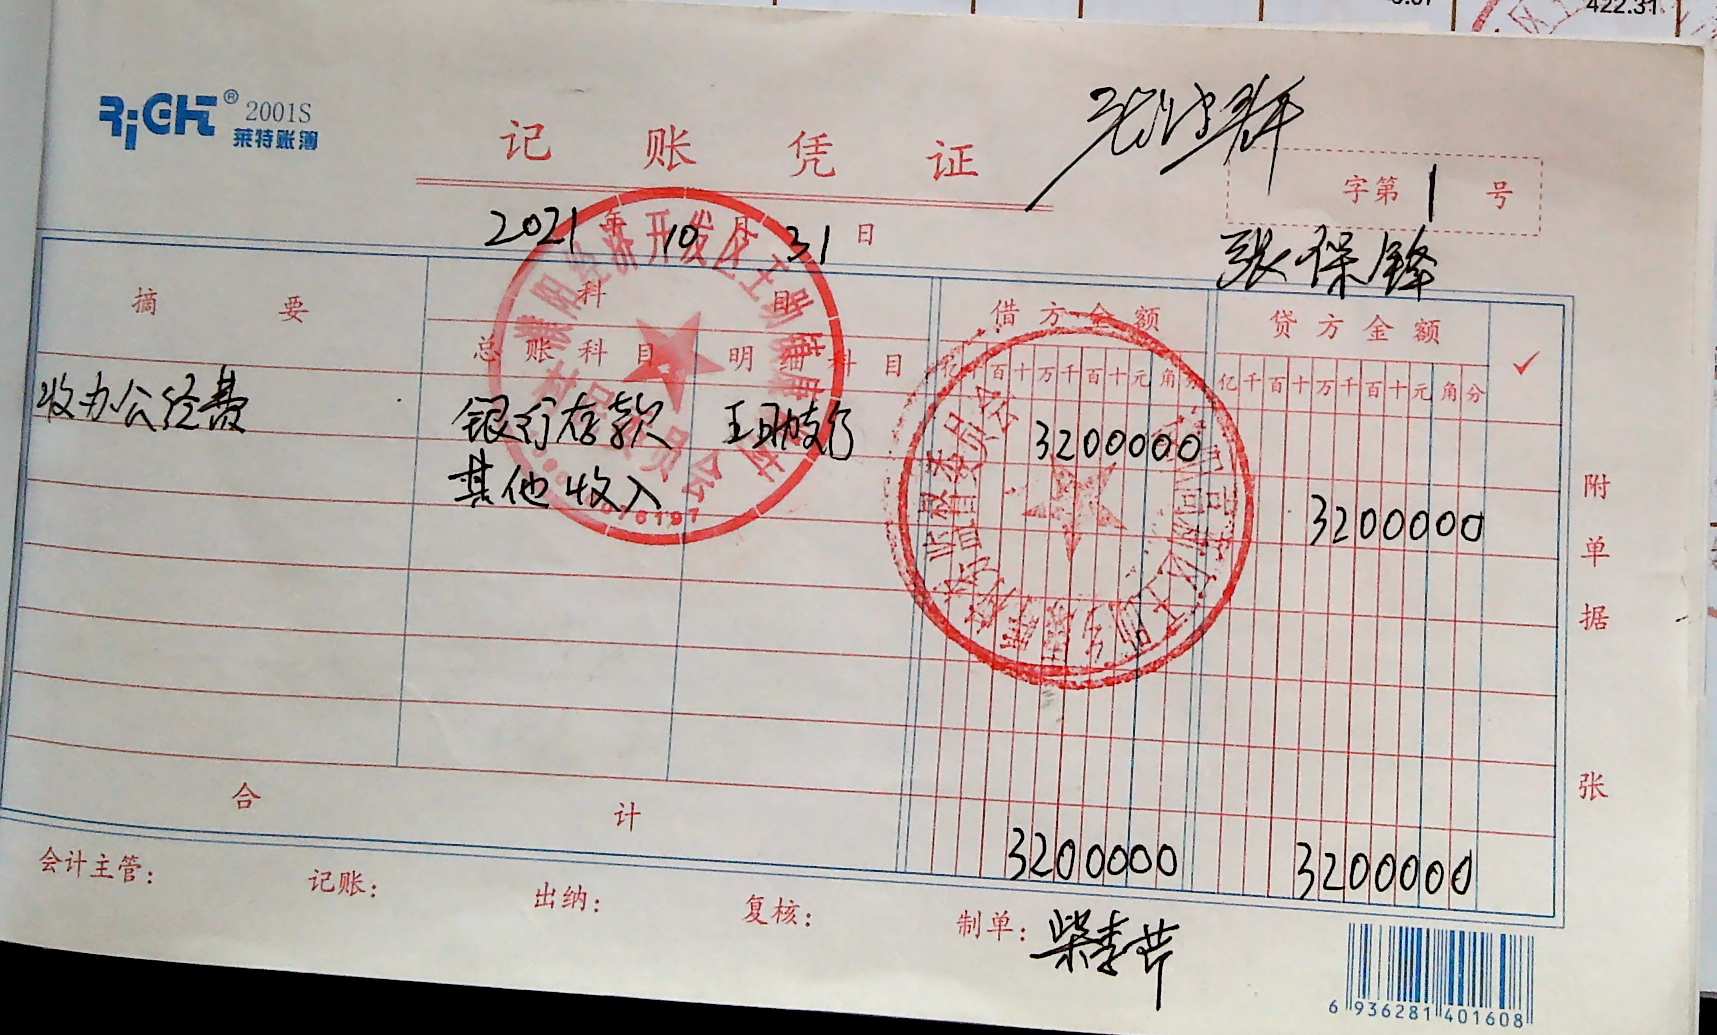 422.31
RiGHT® 2001S
莱特账簿
记账凭证
字第 1 号
2021 年 10 月 31 日
张保锋
摘要 科目 借方金额 贷方金额 ✓
总账科目 明细科目 亿千百十万千百十元角分 亿千百十万千百十元角分
收办公经费 银行存款 3200000
其他收入 3200000
附单据 张
合计 3200000 3200000
会计主管: 记账: 出纳: 复核: 制单: 柴李芹
6 936281 401608
濮阳经济开发区王助镇
村民委员会
村务监督委员会